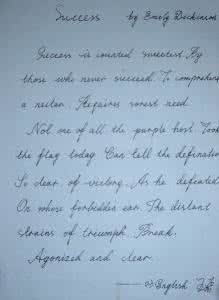 Success by Emily Dickinson
Success is counted sweetest By
those who never succeed. To comprehend
a nectar. Requires sorest need
Not one of all the purple host Took
the flag today Can tell the defination
So clear of victory. As he defeated
On whose forbidden ear. The distant
strains of triumph. Break.
Agonized and clear.
English